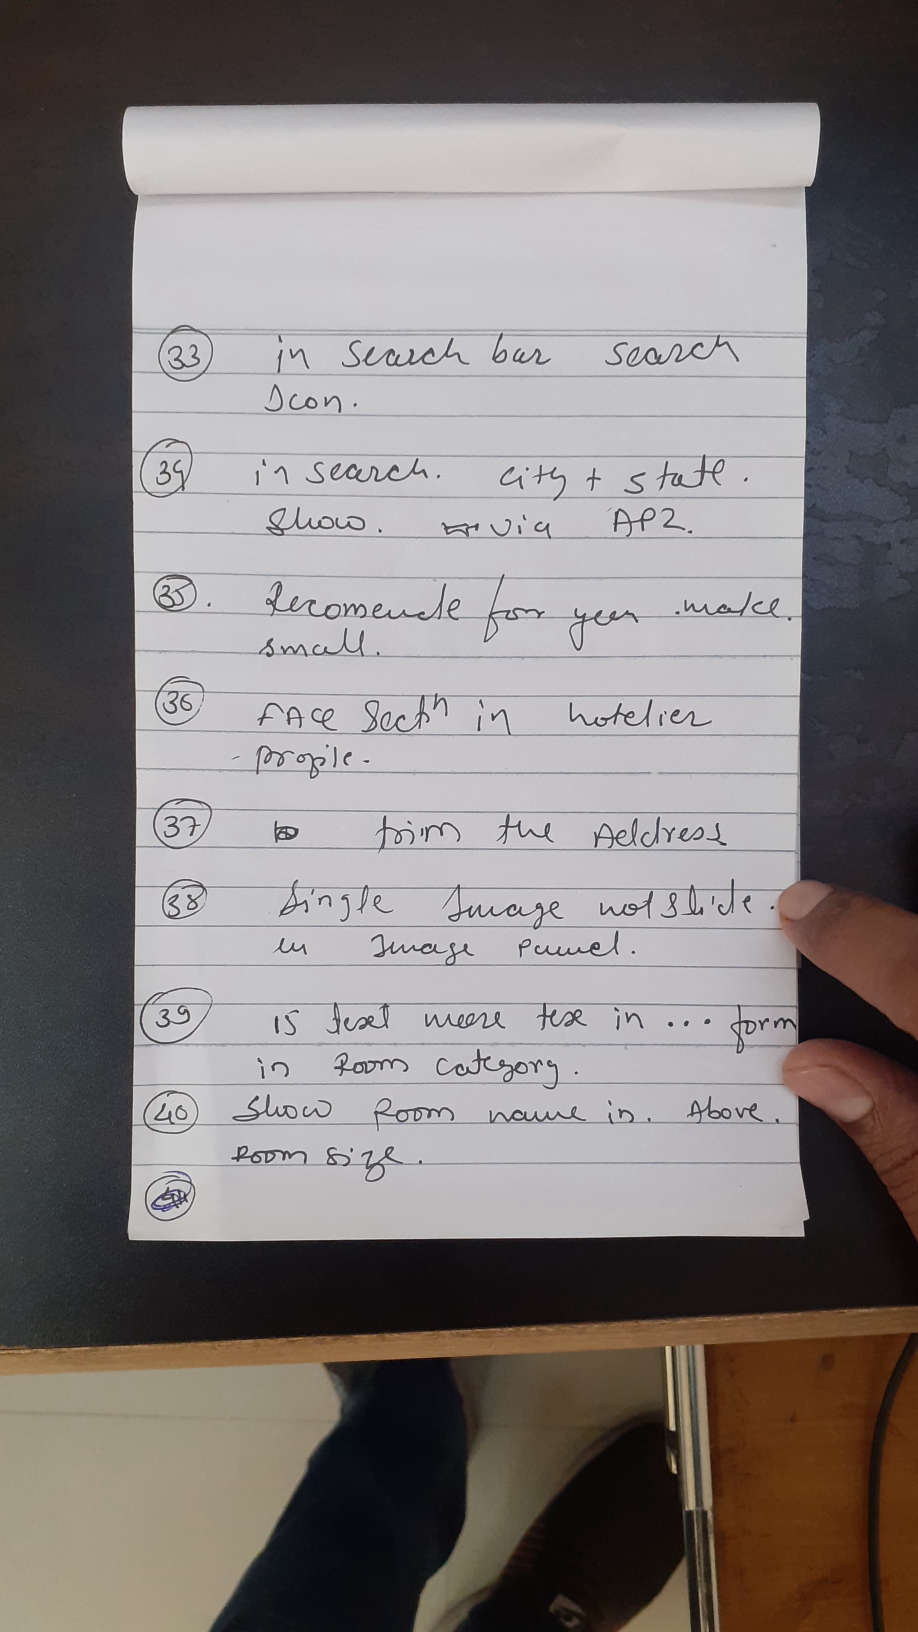 33 in search bar search
Icon.
34 in search. city + state.
show. via API.
35. Recomende for you make.
small.
36 FAQ Sectn in hotelier
- profile.
37 trim the Address
38 Single Image not slide.
in Image Pannel.
39 15 text more tex in ... form
in Room category.
40 Show Room name in. Above.
Room size.